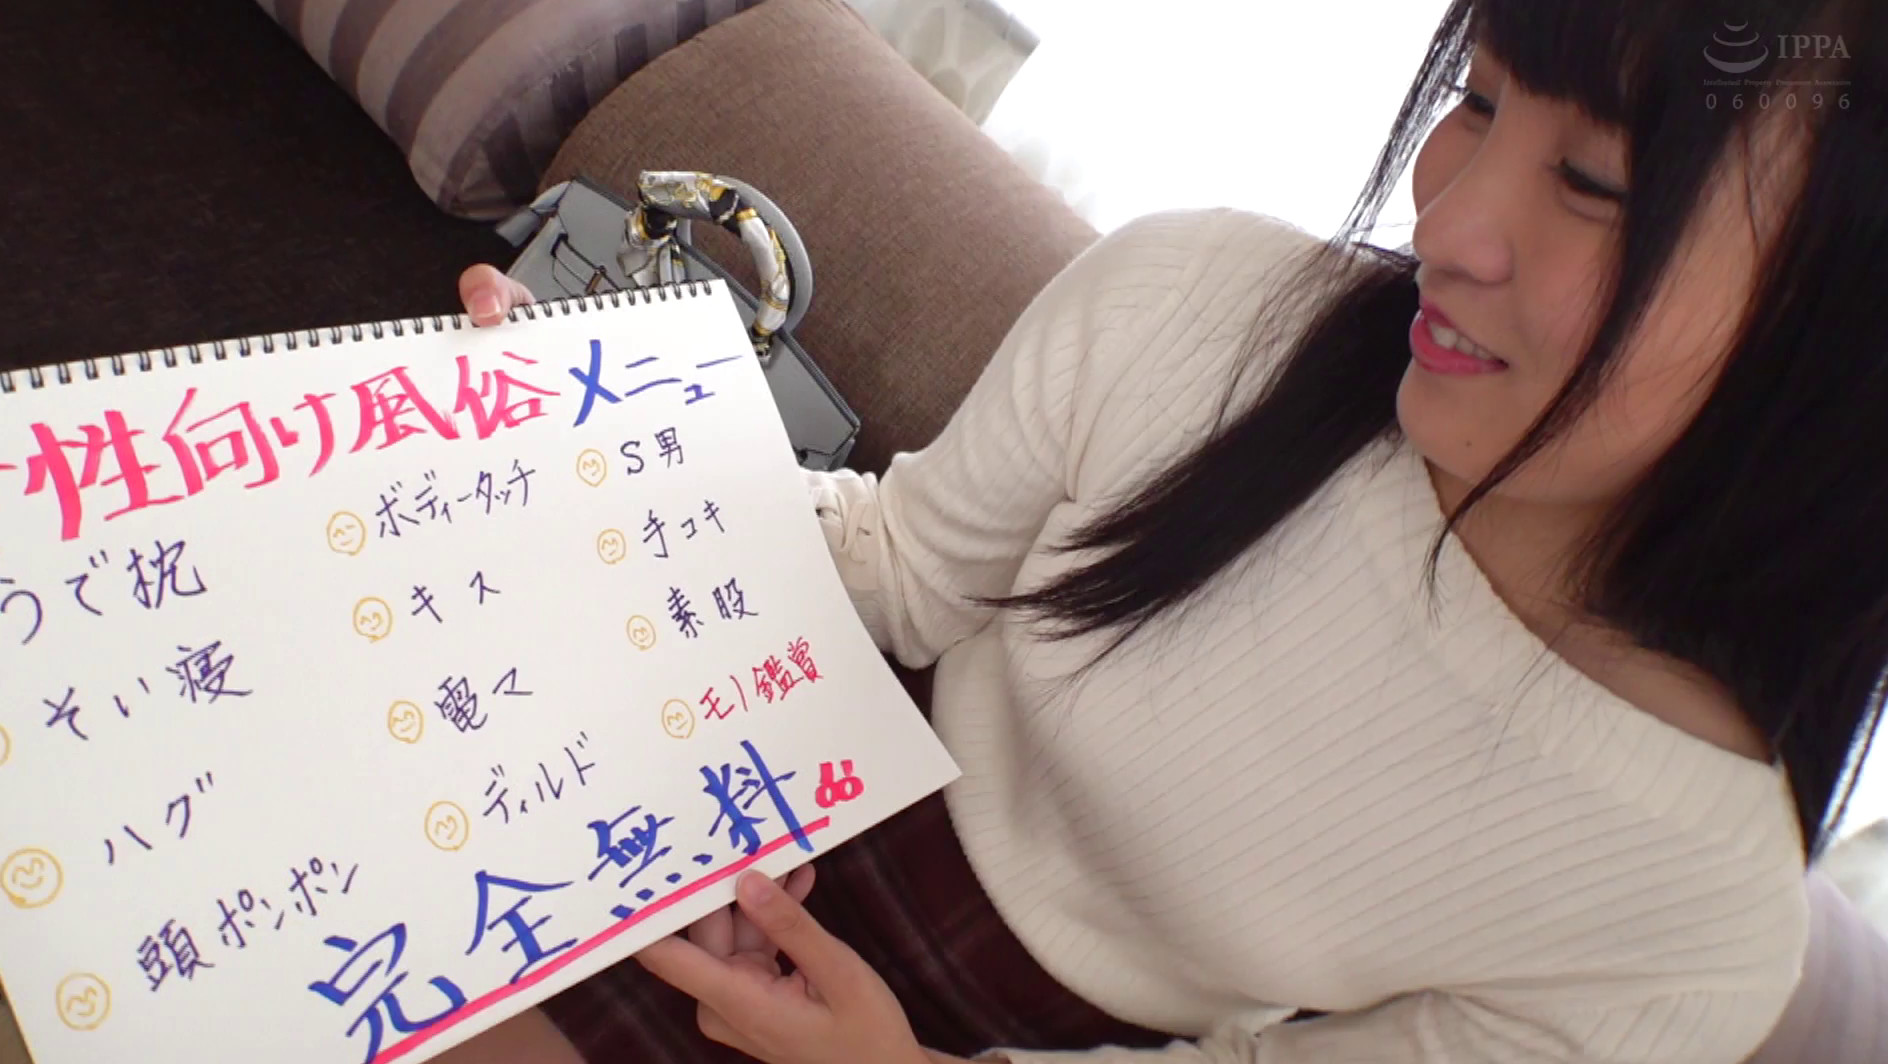 性向け風俗メニュー
うで枕
そい寝
ハグ
頭ポンポン
ボディータッチ
キス
電マ
ディルド
S男
手コキ
素股
モノ鑑賞
完全無料
IPPA
060096